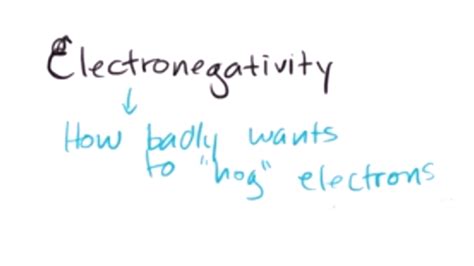 Electronegativity
How badly wants
to "hog" electrons